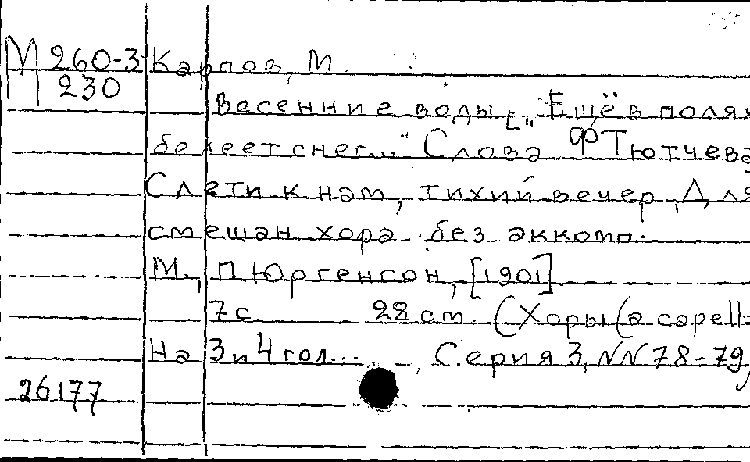 М 260-3 Карпов, М.
230
Весенние воды ["Ещё в полях
белеет снег..." Слова Ф Тютчева
Слети к нам, тихий вечер. Для
смешан хора без аккомп.
М., П Юргенсон, [1901]
7с 28 cm. (Хоры (a capell
На 3 и 4 гол... , Серия 3, NN 78-79)
26177